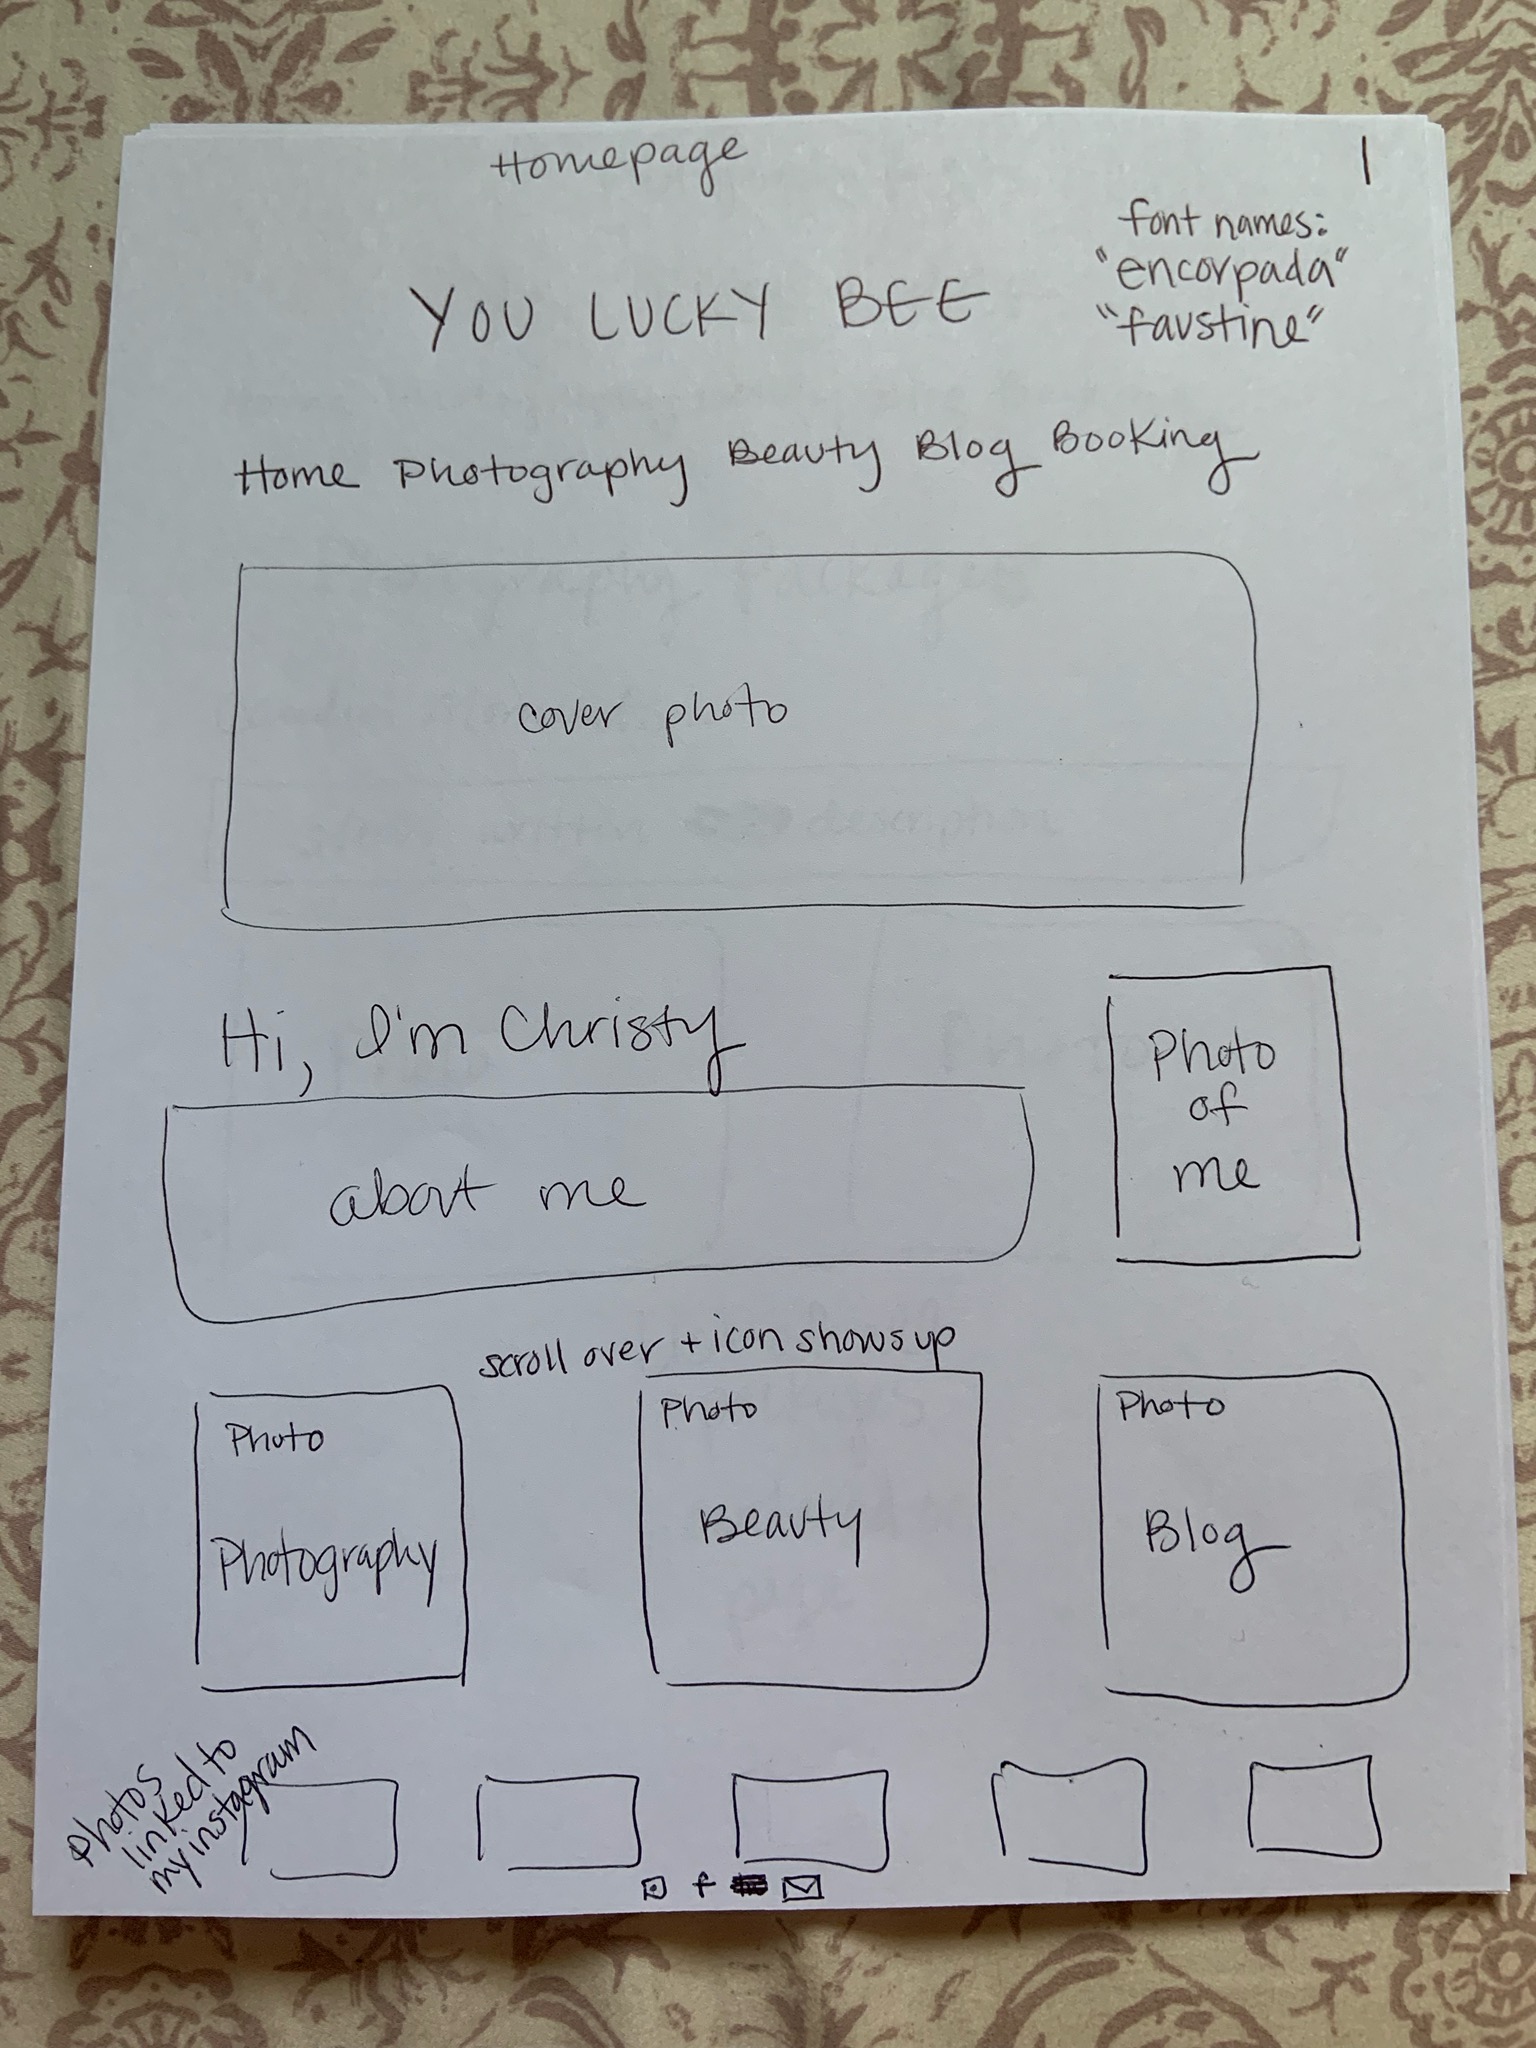 Homepage
1
font names:
"encorpada"
"faustine"
YOU LUCKY BEE
Home Photography Beauty Blog Booking
cover photo
Hi, I'm Christy
about me
Photo
of
me
scroll over + icon shows up
Photo
Photography
Photo
Beauty
Photo
Blog
Photos
linked to
my instagram
f